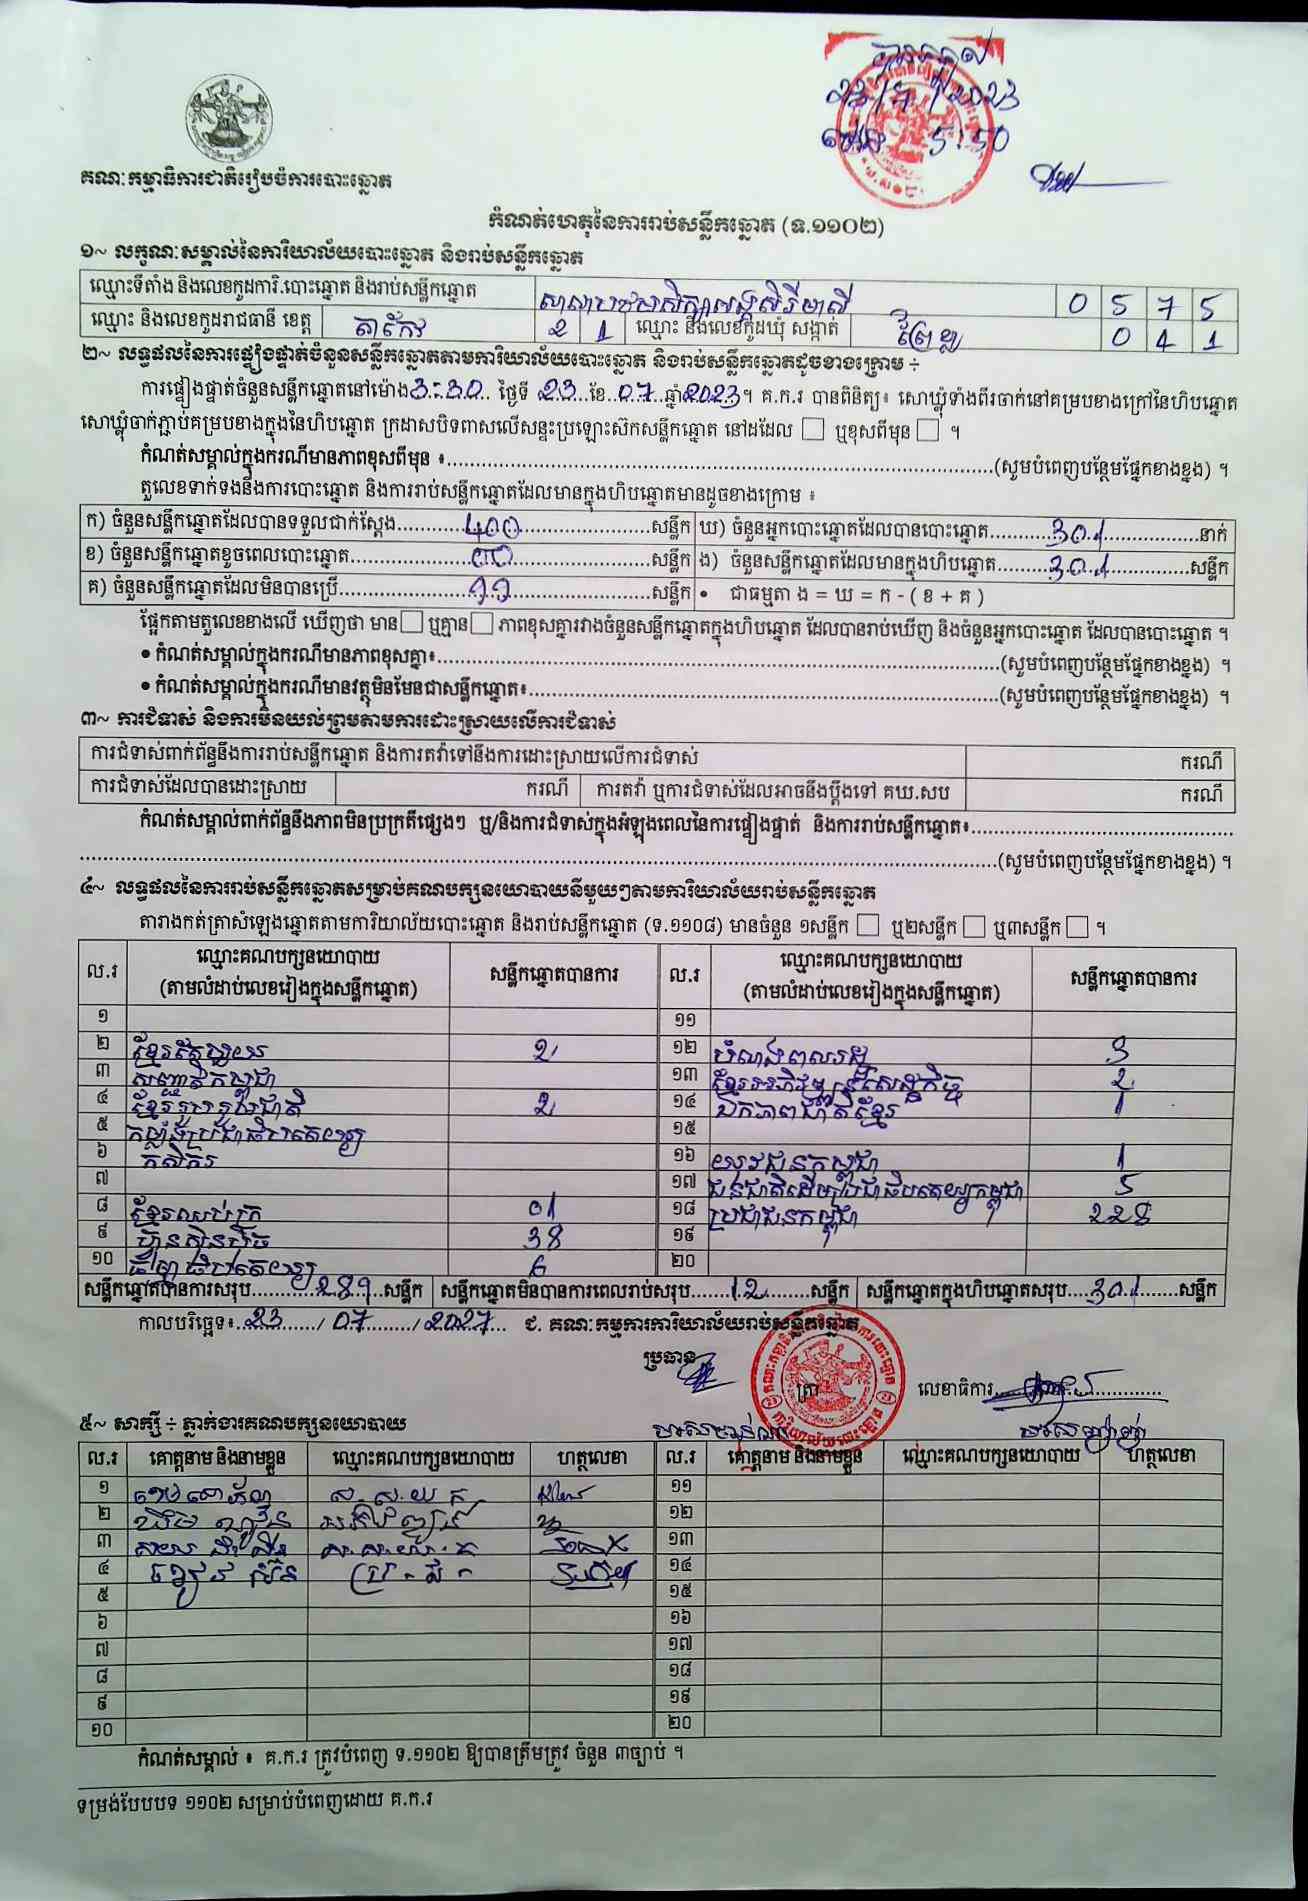 23/7/2023
5:50
គណៈកម្មាធិការជាតិរៀបចំការបោះឆ្នោត
កំណត់ហេតុនៃការរាប់សន្លឹកឆ្នោត (ទ.១១០២)
១~ លក្ខណៈសម្គាល់នៃការិយាល័យបោះឆ្នោត និងរាប់សន្លឹកឆ្នោត
ឈ្មោះទីតាំង និងលេខកូដការិ.បោះឆ្នោត និងរាប់សន្លឹកឆ្នោត 0 5 7 5
ឈ្មោះ និងលេខកូដរាជធានី ខេត្ត តាកែវ 2 1 ឈ្មោះ និងលេខកូដឃុំ សង្កាត់ ព្រៃខ្លា 0 4 1
២~ លទ្ធផលនៃការផ្ទៀងផ្ទាត់ចំនួនសន្លឹកឆ្នោតតាមការិយាល័យបោះឆ្នោត និងរាប់សន្លឹកឆ្នោតដូចខាងក្រោម ÷
ការផ្ទៀងផ្ទាត់ចំនួនសន្លឹកឆ្នោតនៅម៉ោង 3:30 ថ្ងៃទី 23 ខែ 07 ឆ្នាំ 2023 ។ គ.ក.រ បានពិនិត្យ៖ សោឃ្លុំទាំងពីរចាក់នៅគម្របខាងក្រៅនៃហិបឆ្នោត
សោឃ្លុំចាក់ភ្ជាប់គម្របខាងក្នុងនៃហិបឆ្នោត ក្រដាសបិទពាសលើសន្ទះប្រឡោះស៊កសន្លឹកឆ្នោត នៅដដែល ☐ ឬខុសពីមុន ☐ ។
កំណត់សម្គាល់ក្នុងករណីមានភាពខុសពីមុន ៖ (សូមបំពេញបន្ថែមផ្នែកខាងខ្នង) ។
តួលេខទាក់ទងនឹងការបោះឆ្នោត និងការរាប់សន្លឹកឆ្នោតដែលមានក្នុងហិបឆ្នោតមានដូចខាងក្រោម ៖
ក) ចំនួនសន្លឹកឆ្នោតដែលបានទទួលជាក់ស្តែង 400 សន្លឹក ឃ) ចំនួនអ្នកបោះឆ្នោតដែលបានបោះឆ្នោត 301 នាក់
ខ) ចំនួនសន្លឹកឆ្នោតខូចពេលបោះឆ្នោត 00 សន្លឹក ង) ចំនួនសន្លឹកឆ្នោតដែលមានក្នុងហិបឆ្នោត 301 សន្លឹក
គ) ចំនួនសន្លឹកឆ្នោតដែលមិនបានប្រើ 99 សន្លឹក • ជាធម្មតា ង = ឃ = ក - ( ខ + គ )
ផ្អែកតាមតួលេខខាងលើ ឃើញថា មាន ☐ ឬគ្មាន ☐ ភាពខុសគ្នារវាងចំនួនសន្លឹកឆ្នោតក្នុងហិបឆ្នោត ដែលបានរាប់ឃើញ និងចំនួនអ្នកបោះឆ្នោត ដែលបានបោះឆ្នោត ។
• កំណត់សម្គាល់ក្នុងករណីមានភាពខុសគ្នា៖ (សូមបំពេញបន្ថែមផ្នែកខាងខ្នង) ។
• កំណត់សម្គាល់ក្នុងករណីមានវត្ថុមិនមែនជាសន្លឹកឆ្នោត៖ (សូមបំពេញបន្ថែមផ្នែកខាងខ្នង) ។
៣~ ការជំទាស់ និងការមិនយល់ព្រមតាមការដោះស្រាយលើការជំទាស់
ការជំទាស់ពាក់ព័ន្ធនឹងការរាប់សន្លឹកឆ្នោត និងការតវ៉ាទៅនឹងការដោះស្រាយលើការជំទាស់ ករណី
ការជំទាស់ដែលបានដោះស្រាយ ករណី ការតវ៉ា ឬការជំទាស់ដែលអាចនឹងប្តឹងទៅ គឃ.សប ករណី
កំណត់សម្គាល់ពាក់ព័ន្ធនឹងភាពមិនប្រក្រតីផ្សេងៗ ឬ/និងការជំទាស់ក្នុងអំឡុងពេលនៃការផ្ទៀងផ្ទាត់ និងការរាប់សន្លឹកឆ្នោត៖
(សូមបំពេញបន្ថែមផ្នែកខាងខ្នង) ។
៤~ លទ្ធផលនៃការរាប់សន្លឹកឆ្នោតសម្រាប់គណបក្សនយោបាយនីមួយៗតាមការិយាល័យរាប់សន្លឹកឆ្នោត
តារាងកត់ត្រាសំឡេងឆ្នោតតាមការិយាល័យបោះឆ្នោត និងរាប់សន្លឹកឆ្នោត (ទ.១១០៨) មានចំនួន ១សន្លឹក ☐ ឬ២សន្លឹក ☐ ឬ៣សន្លឹក ☐ ។
ល.រ ឈ្មោះគណបក្សនយោបាយ (តាមលំដាប់លេខរៀងក្នុងសន្លឹកឆ្នោត) សន្លឹកឆ្នោតបានការ ល.រ ឈ្មោះគណបក្សនយោបាយ (តាមលំដាប់លេខរៀងក្នុងសន្លឹកឆ្នោត) សន្លឹកឆ្នោតបានការ
១ ១១
២ 2 ១២ 3
៣ ១៣ ខ្មែរអភិវឌ្ឍន៍សេដ្ឋកិច្ច 2
៤ ខ្មែររួបរួមជាតិ 2 ១៤ ឯកភាពជាតិខ្មែរ 1
៥ កម្លាំងប្រជាធិបតេយ្យ ១៥
៦ កសិករ ១៦ យុវជនកម្ពុជា 1
៧ ១៧ ជនជាតិដើមប្រជាធិបតេយ្យកម្ពុជា 5
៨ ខ្មែរឈប់ក្រ 01 ១៨ ប្រជាជនកម្ពុជា 228
៩ ហ៊្វុនស៊ិនប៉ិច 38 ១៩
១០ ធម្មាធិបតេយ្យ 6 ២០
សន្លឹកឆ្នោតបានការសរុប 289 សន្លឹក សន្លឹកឆ្នោតមិនបានការពេលរាប់សរុប 12 សន្លឹក សន្លឹកឆ្នោតក្នុងហិបឆ្នោតសរុប 301 សន្លឹក
កាលបរិច្ឆេទ៖ 23 / 07 / 2023 ជ. គណៈកម្មការការិយាល័យរាប់សន្លឹកឆ្នោត
ប្រធាន ត្រា លេខាធិការ
៥~ សាក្សី ÷ ភ្នាក់ងារគណបក្សនយោបាយ
ល.រ គោត្តនាម និងនាមខ្លួន ឈ្មោះគណបក្សនយោបាយ ហត្ថលេខា ល.រ គោត្តនាម និងនាមខ្លួន ឈ្មោះគណបក្សនយោបាយ ហត្ថលេខា
១ ១១
២ ១២
៣ ១៣
៤ ១៤
៥ ១៥
៦ ១៦
៧ ១៧
៨ ១៨
៩ ១៩
១០ ២០
កំណត់សម្គាល់ ៖ គ.ក.រ ត្រូវបំពេញ ទ.១១០២ ឱ្យបានត្រឹមត្រូវ ចំនួន ៣ច្បាប់ ។
ទម្រង់បែបបទ ១១០២ សម្រាប់បំពេញដោយ គ.ក.រ